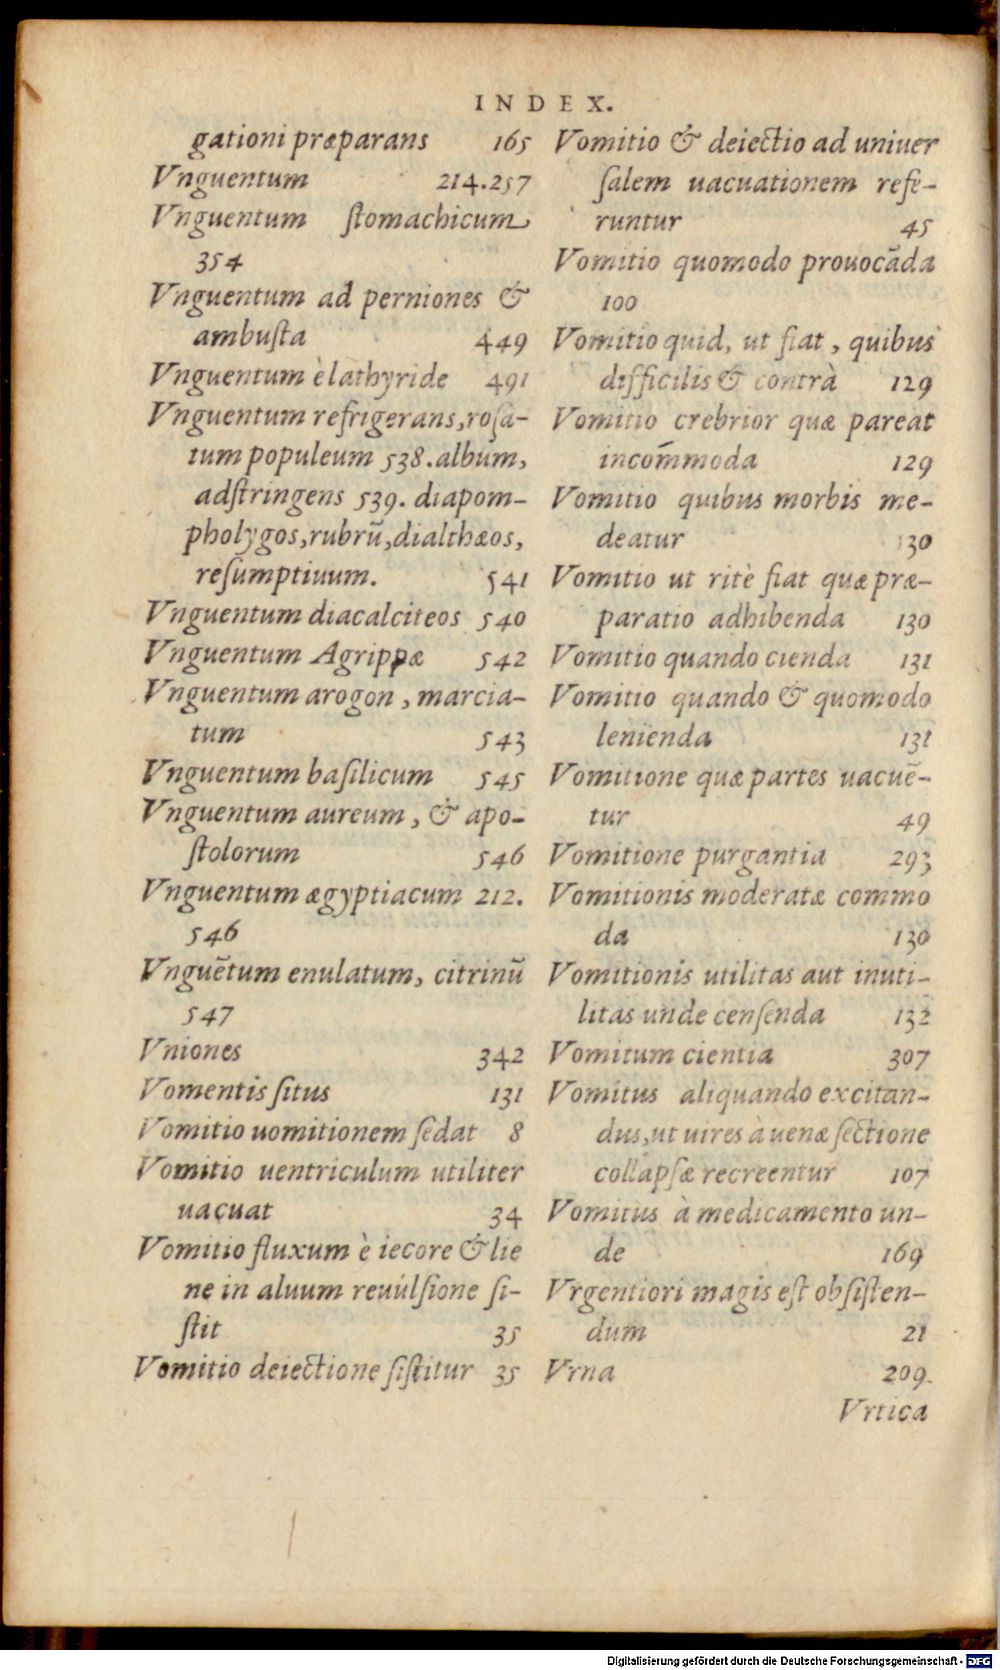 INDEX.
gationi præparans 165
Vnguentum 214.257
Vnguentum ſtomachicum
354
Vnguentum ad perniones &
ambuſta 449
Vnguentum è lathyride 491
Vnguentum refrigerans, roſa-
tum populeum 538. album,
adſtringens 539. diapom-
pholygos, rubrū, dialthæos,
reſumptiuum. 541
Vnguentum diacalciteos 540
Vnguentum Agrippæ 542
Vnguentum arogon, marcia-
tum 543
Vnguentum baſilicum 545
Vnguentum aureum, & apo-
ſtolorum 546
Vnguentum ægyptiacum 212.
546
Vnguētum enulatum, citrinū
547
Vniones 342
Vomentis ſitus 131
Vomitio uomitionem ſedat 8
Vomitio uentriculum utiliter
uacuat 34
Vomitio fluxum è iecore & lie
ne in aluum reuulſione ſi-
ſtit 35
Vomitio deiectione ſiſtitur 35
Vomitio & deiectio ad uniuer
ſalem uacuationem refe-
runtur 45
Vomitio quomodo prouocāda
100
Vomitio quid, ut fiat, quibus
difficilis & contrà 129
Vomitio crebrior quæ pareat
incōmmoda 129
Vomitio quibus morbis me-
deatur 130
Vomitio ut ritè fiat quæ præ-
paratio adhibenda 130
Vomitio quando cienda 131
Vomitio quando & quomodo
lenienda 131
Vomitione quæ partes uacuē-
tur 49
Vomitione purgantia 293
Vomitionis moderatæ commo
da 130
Vomitionis utilitas aut inuti-
litas unde cenſenda 132
Vomitum cientia 307
Vomitus aliquando excitan-
dus, ut uires à uenæ ſectione
collapſæ recreentur 107
Vomitus à medicamento un-
de 169
Vrgentiori magis eſt obſiſten-
dum 21
Vrna 209.
Vrtica
Digitalisierung gefördert durch die Deutsche Forschungsgemeinschaft - DFG